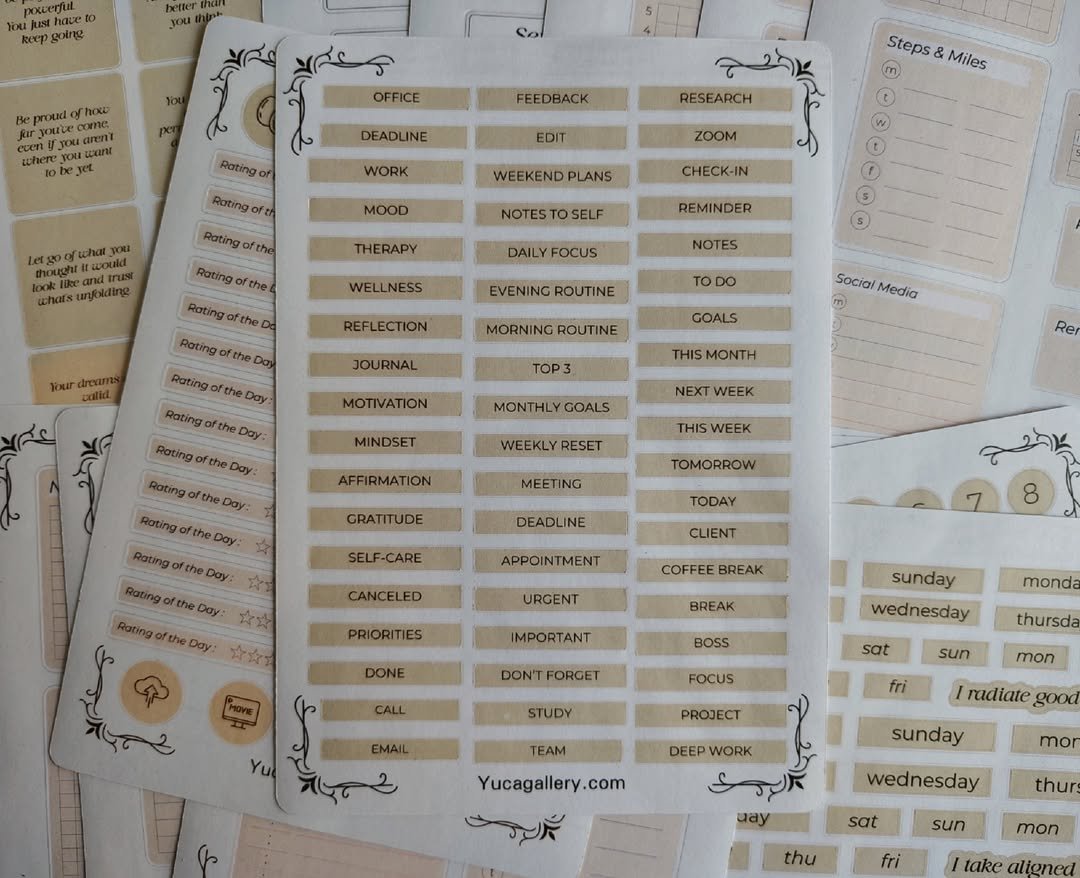 powerful.
You just have to
keep going.
better than
you think.
Be proud of how
far you've come,
even if you aren't
where you want
to be yet.
You
Let go of what you
thought it would
look like and trust
what's unfolding.
Your dreams
valid.
Rating of
Rating of th
Rating of the
Rating of the
Rating of the Da
Rating of the Day
Rating of the Day
Rating of the Day:
Rating of the Day:
Rating of the Day:
Rating of the Day:
Rating of the Day:
Rating of the Day:
Rating of the Day:
MOVIE
Yu
OFFICE
DEADLINE
WORK
MOOD
THERAPY
WELLNESS
REFLECTION
JOURNAL
MOTIVATION
MINDSET
AFFIRMATION
GRATITUDE
SELF-CARE
CANCELED
PRIORITIES
DONE
CALL
EMAIL
FEEDBACK
EDIT
WEEKEND PLANS
NOTES TO SELF
DAILY FOCUS
EVENING ROUTINE
MORNING ROUTINE
TOP 3
MONTHLY GOALS
WEEKLY RESET
MEETING
DEADLINE
APPOINTMENT
URGENT
IMPORTANT
DON'T FORGET
STUDY
TEAM
RESEARCH
ZOOM
CHECK-IN
REMINDER
NOTES
TO DO
GOALS
THIS MONTH
NEXT WEEK
THIS WEEK
TOMORROW
TODAY
CLIENT
COFFEE BREAK
BREAK
BOSS
FOCUS
PROJECT
DEEP WORK
Yucagallery.com
5
4
Steps & Miles
m
t
w
t
f
s
s
Social Media
m
Rer
7 8
sunday monda
wednesday thursda
sat sun mon
fri I radiate good
sunday mor
wednesday thurs
day sat sun mon
thu fri I take aligned